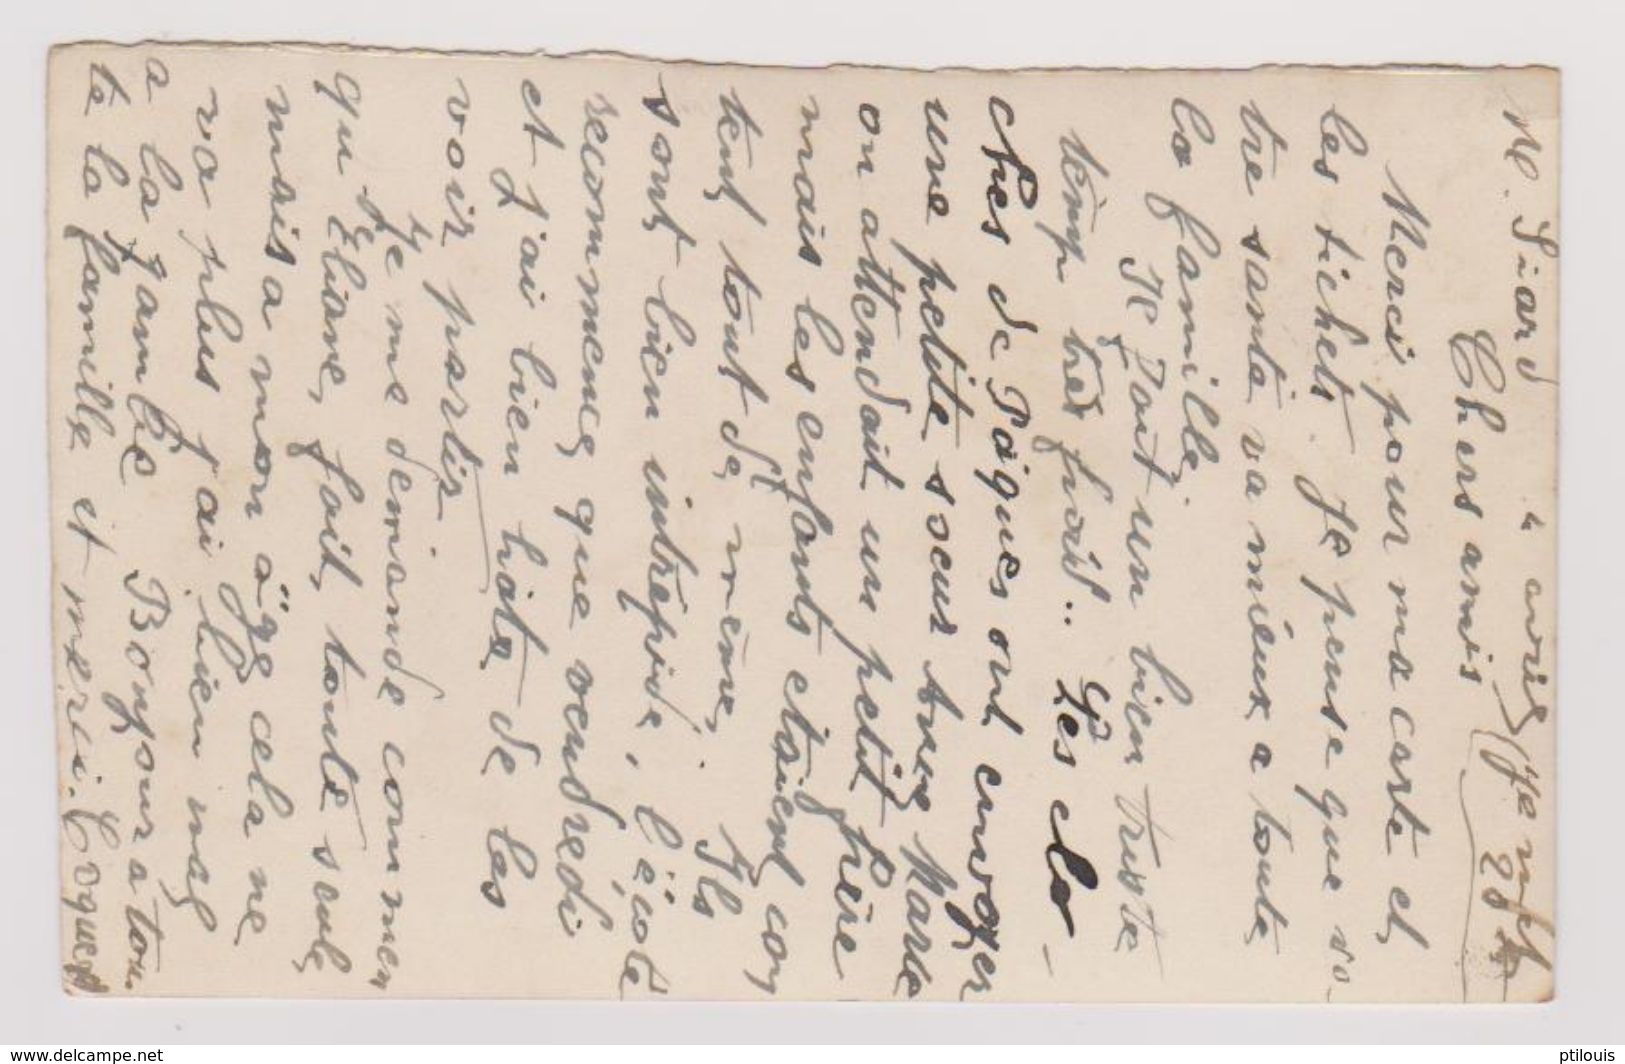 M. Siard 4 avril
Chers amis
Merci pour ma carte et
les tickets. Je pense que vo-
tre santé va miéux a toute
la famille.
Je Zait un bien triste
temp tres froid.. Les clo-
ches de Pâques ont envoyer
une petite soeur Anne Marie
on attendait un petit frère
mais les enfants étaient con
tent tout de même. Ils
sont bien intrépide, l'école
recommence que vendredi
et j'ai bien hâte de les
voir partir.
Je me demande commen
qu'Eliane, fait, toute seule
mais a mon âge cela ne
va plus j'ai bien mal
a la jambe Bonjour a tou-
te la famille et merci. Coquer
www.delcampe.net
ptilouis